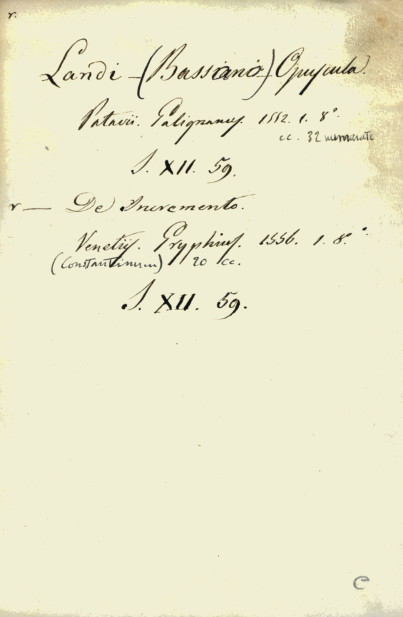 r.
Landi - (Bassiano) Opuscula.
Patavii. Galignanus. 1552. 1. 8°
cc. 32 numerate
S. XII. 59.
r — De Incremento.
Venetijs. Gryphius. 1556. 1. 8.°
(Constantinum) 20 cc.
S. XII. 59.
C